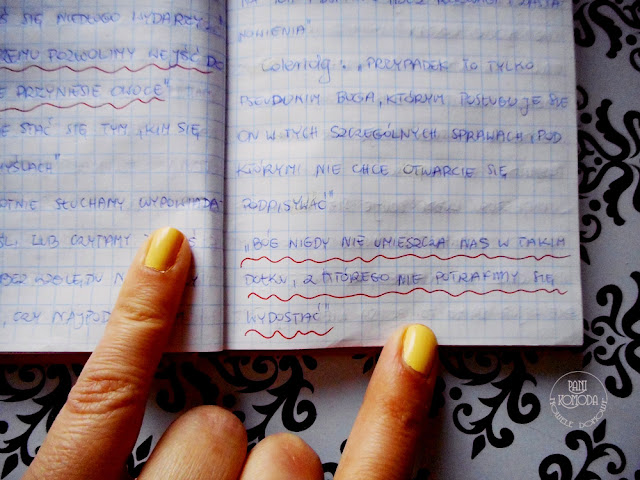 SIĘ NIEDŁUGO WYDARZY,
POZWOLIMY WEJŚĆ DO
E PRZYNIESIE OWOCE"
E STAĆ SIĘ TYM, KIM SIĘ
MYŚLACH"
OTNIE SŁUCHAMY WYPOWIADA-
LI, LUB CZYTAMY
BEZ WZGLĘDU NA
, CZY NAJPO
NOWIENIA"
Coleridg: „PRZYPADEK TO TYLKO
PSEUDONIM BOGA, KTÓRYM POSŁUGUJE SIĘ
ON W TYCH SZCZEGÓLNYCH SPRAWACH, POD
KTÓRYMI NIE CHCE OTWARCIE SIĘ
PODPISYWAĆ"
„BÓG NIGDY NIE UMIESZCZA NAS W TAKIM
DOŁKU, Z KTÓREGO NIE POTRAFIMY SIĘ
WYDOSTAĆ"
PANI
KOMODA